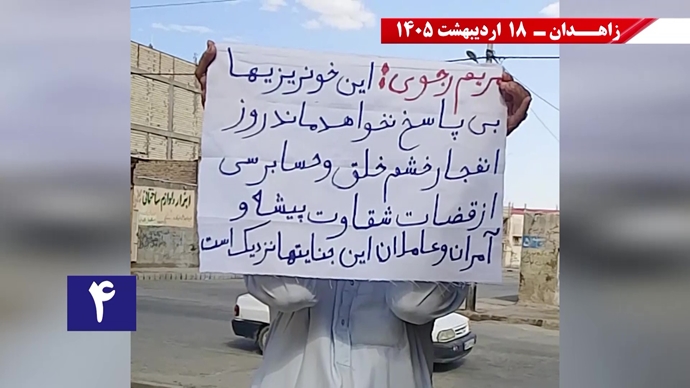 زاهدان ــ ۱۸ اردیبهشت ۱۴۰۵
مریم رجوی: این خونریزیها
بی پاسخ نخواهد ماند روز
انفجار خشم خلق و حسابرسی
از قضات شقاوت پیشه و
آمران و عاملان این جنایتها نزدیک است
ابزار و لوازم ساختمانی
۴